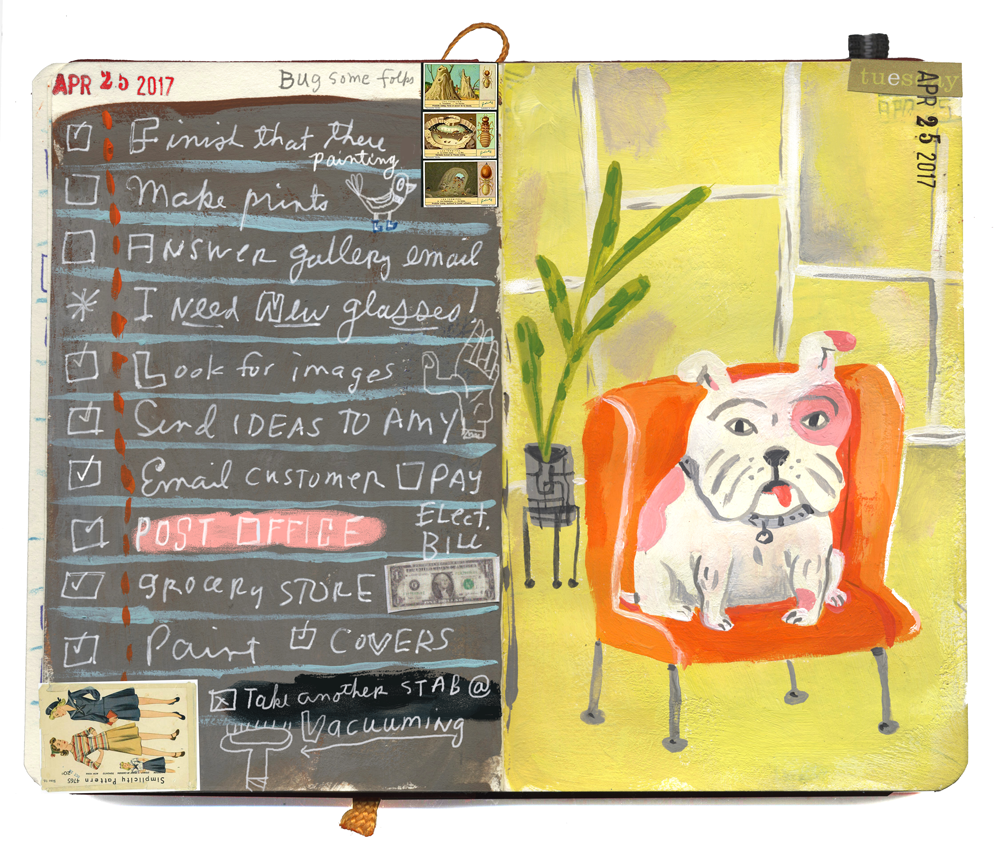 APR 25 2017
Bug some folks
Finish that there
painting
Make prints
ANSWER gallery email
I Need New glasses!
Look for images
Send IDEAS TO AMY
Email CUSTOMER
PAY
Elect.
Bill
POST OFFICE
grocery STORE
Paint COVERS
Take another STAB @
Vacuuming
Simplicity Pattern
4765
tuesday
APR 25 2017